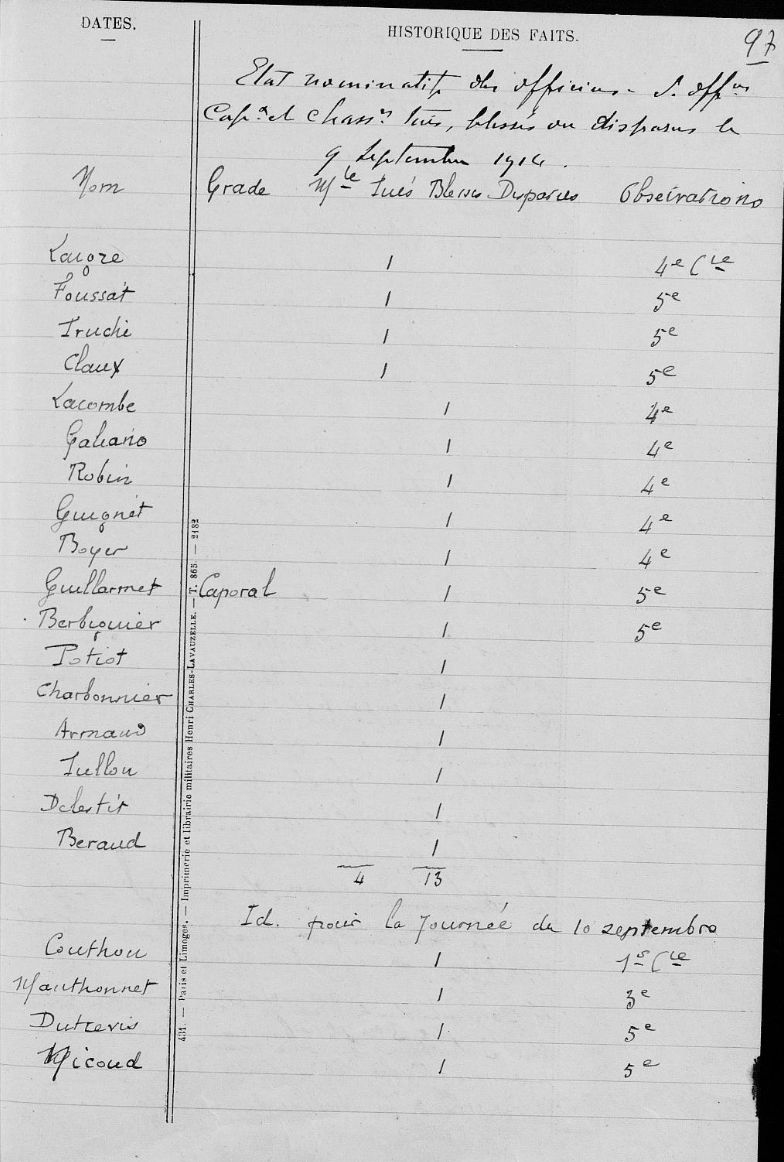 DATES.
HISTORIQUE DES FAITS.
97
Etat nominatif des officiers - S. offers
Capx et chassrs tués, blessés ou disparus le
9 Septembre 1914.
Nom Grade Mle Tués Blessés Disparus Observations
1 4e Cie
Foussat 1 5e
Truchi 1 5e
Claux 1 5e
Lacombe 1 4e
Galiano 1 4e
Robin 1 4e
Guignet 1 4e
Boyer 1 4e
Guillarmet Caporal 1 5e
Berbiguier 1 5e
Potiot 1
Charbonnier 1
Armand 1
Tullou 1
Delestir 1
Beraud 1
4 13
Id. pour la Journée du 10 septembre
Couthou 1 1re Cie
Mauthonnet 1 3e
Dutrevis 1 5e
Micoud 1 5e
431. — Paris et Limoges. — Imprimerie et librairie militaires Henri CHARLES-LAVAUZELLE. — T. 865. — 2182